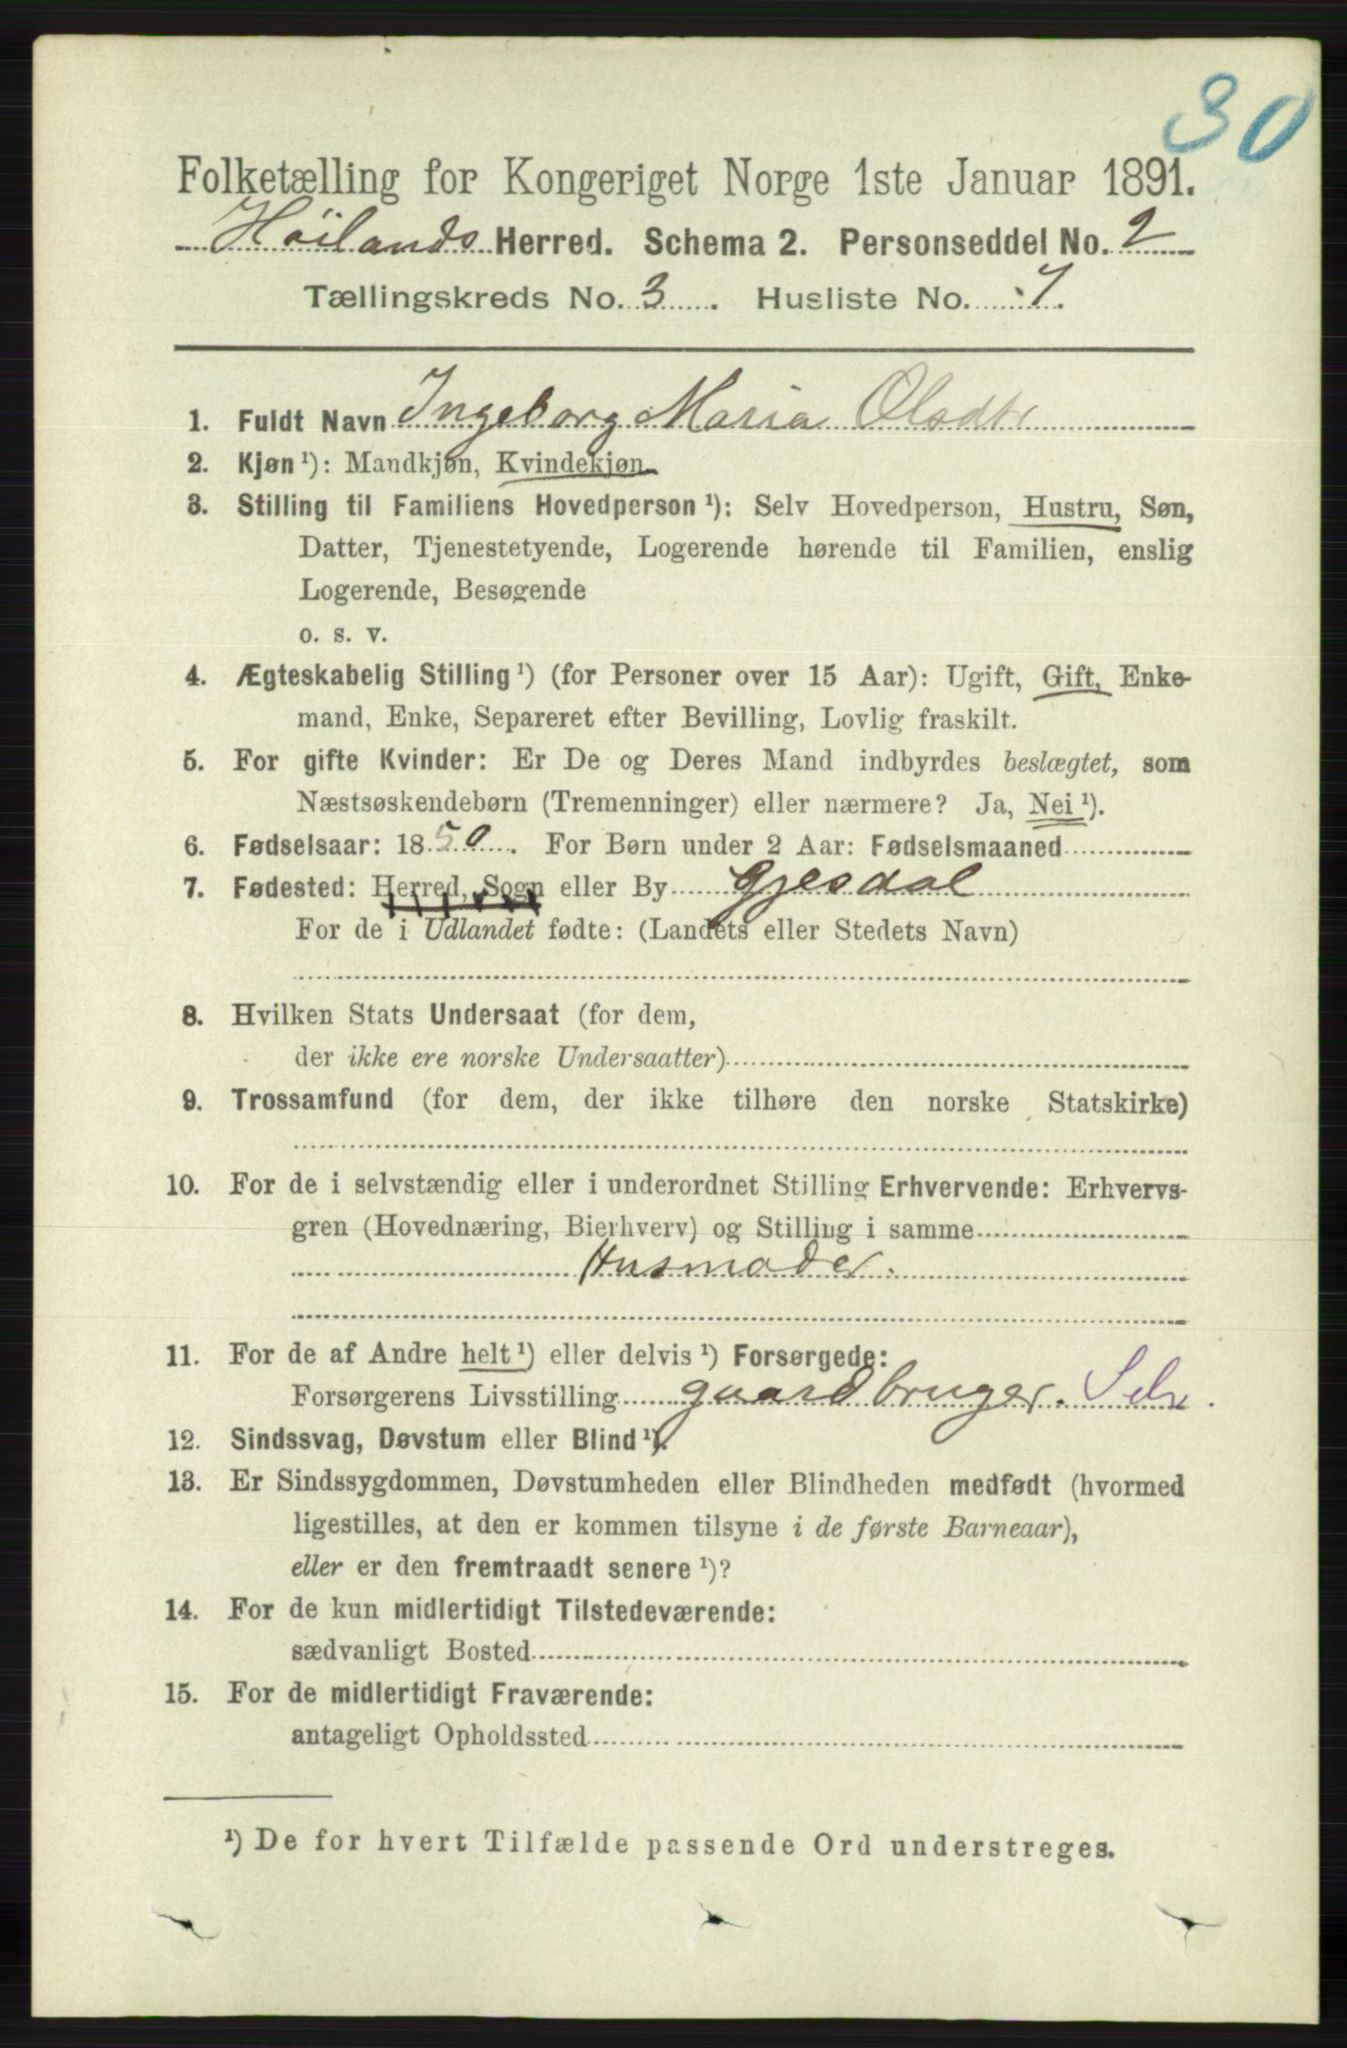 30
Folketælling for Kongeriget Norge 1ste Januar 1891.
Höilands Herred. Schema 2. Personseddel No. 2
Tællingskreds No. 3. Husliste No. 7.
1. Fuldt Navn Ingeborg Maria Olsdtr
2. Kjøn ¹): Mandkjøn, Kvindekjøn.
3. Stilling til Familiens Hovedperson ¹): Selv Hovedperson, Hustru, Søn,
Datter, Tjenestetyende, Logerende hørende til Familien, enslig
Logerende, Besøgende
o. s. v.
4. Ægteskabelig Stilling ¹) (for Personer over 15 Aar): Ugift, Gift, Enke-
mand, Enke, Separeret efter Bevilling, Lovlig fraskilt.
5. For gifte Kvinder: Er De og Deres Mand indbyrdes beslægtet, som
Næstsøskendebørn (Tremenninger) eller nærmere? Ja, Nei ¹).
6. Fødselsaar: 1850. For Børn under 2 Aar: Fødselsmaaned
7. Fødested: Herred, Sogn eller By Gjesdal
For de i Udlandet fødte: (Landets eller Stedets Navn)
8. Hvilken Stats Undersaat (for dem,
der ikke ere norske Undersaatter)
9. Trossamfund (for dem, der ikke tilhøre den norske Statskirke)
10. For de i selvstændig eller i underordnet Stilling Erhvervende: Erhvervs-
gren (Hovednæring, Bierhverv) og Stilling i samme
Husmoder.
11. For de af Andre helt ¹) eller delvis ¹) Forsørgede:
Forsørgerens Livsstilling gaardbruger. Selv.
12. Sindssvag, Døvstum eller Blind ¹).
13. Er Sindssygdommen, Døvstumheden eller Blindheden medfødt (hvormed
ligestilles, at den er kommen tilsyne i de første Barneaar),
eller er den fremtraadt senere ¹)?
14. For de kun midlertidigt Tilstedeværende:
sædvanligt Bosted
15. For de midlertidigt Fraværende:
antageligt Opholdssted
¹) De for hvert Tilfælde passende Ord understreges.